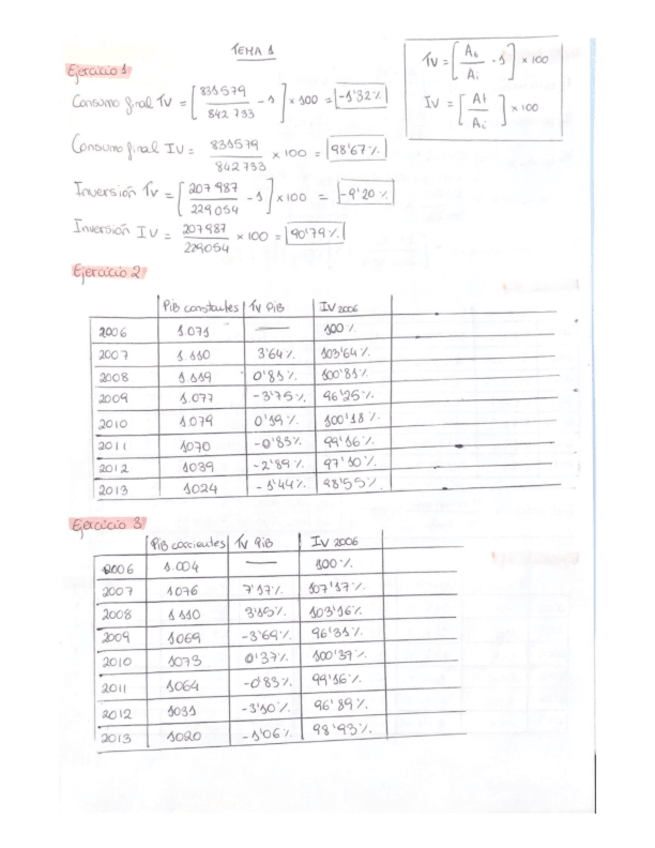 TEMA 1
Tv = [At / Ai - 1] × 100
IV = [At / Ai] × 100
Ejercicio 1
Consumo final Tv = [831579 / 842733 - 1] × 100 = -1'32%
Consumo final IV = 831579 / 842733 × 100 = 98'67%
Inversión Tv = [207987 / 229054 - 1] × 100 = -9'20%
Inversión IV = 207987 / 229054 × 100 = 90'79%
Ejercicio 2
PiB constantes Tv PiB IV 2006
2006 1.071 — 100%
2007 1.110 3'64% 103'64%
2008 1.119 0'81% 100'81%
2009 1.077 -3'75% 96'25%
2010 1.079 0'19% 100'18%
2011 1070 -0'83% 99'16%
2012 1039 -2'89% 97'10%
2013 1024 -1'44% 98'55%
Ejercicio 3
PiB corrientes Tv PiB IV 2006
2006 1.004 — 100%
2007 1076 7'17% 107'17%
2008 1110 3'15% 103'16%
2009 1069 -3'69% 96'31%
2010 1073 0'37% 100'37%
2011 1064 -0'83% 99'16%
2012 1031 -3'10% 96'89%
2013 1020 -1'06% 98'93%